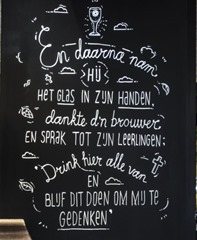 "En daarna nam
HIJ
HET GLAS IN ZIJN HANDEN,
dankte d'n brouwer
EN SPRAK TOT ZIJN LEERLINGEN:
"Drink hier alle van
EN
BLIJF DIT DOEN OM MIJ TE
GEDENKEN"